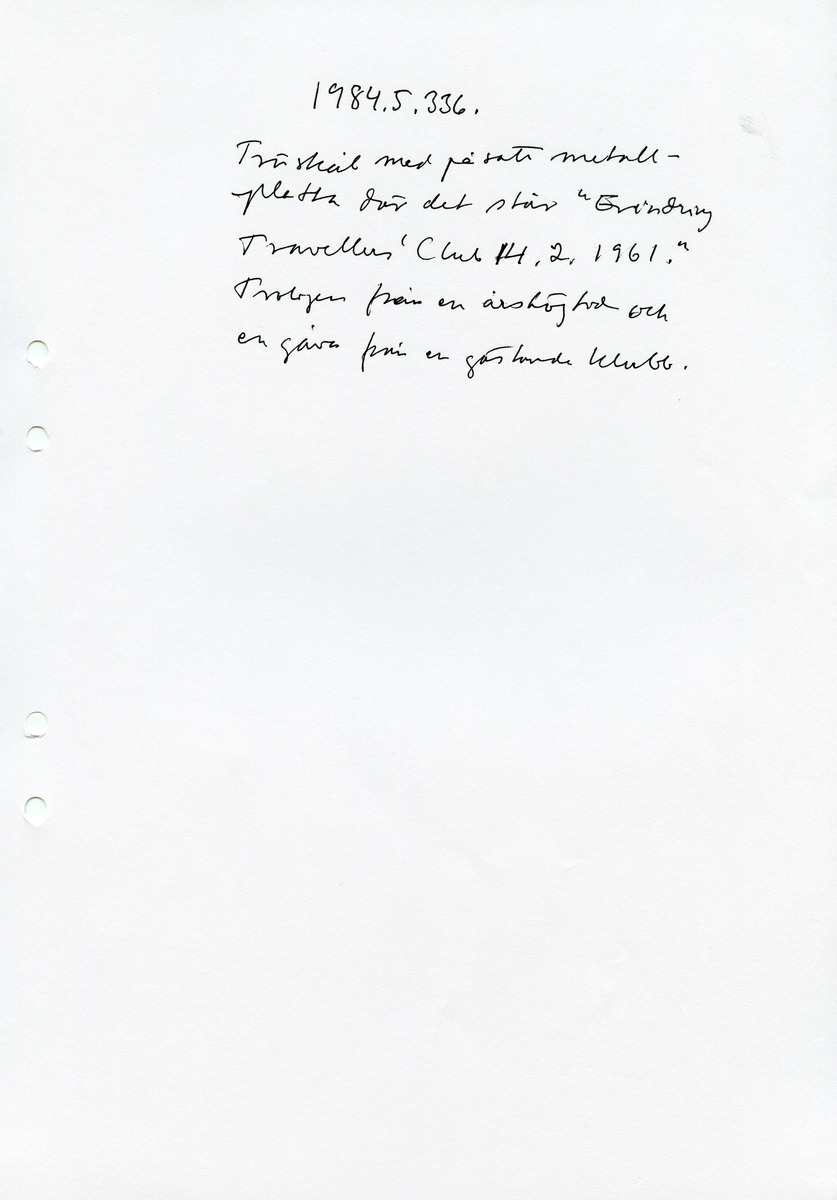 1984.5.336.
Träskål med påsatt metall-
-platta där det står "Erindring
Travellers' Club 14.2.1961."
Troligen från en årshögtid och
en gåva från en gästande klubb.